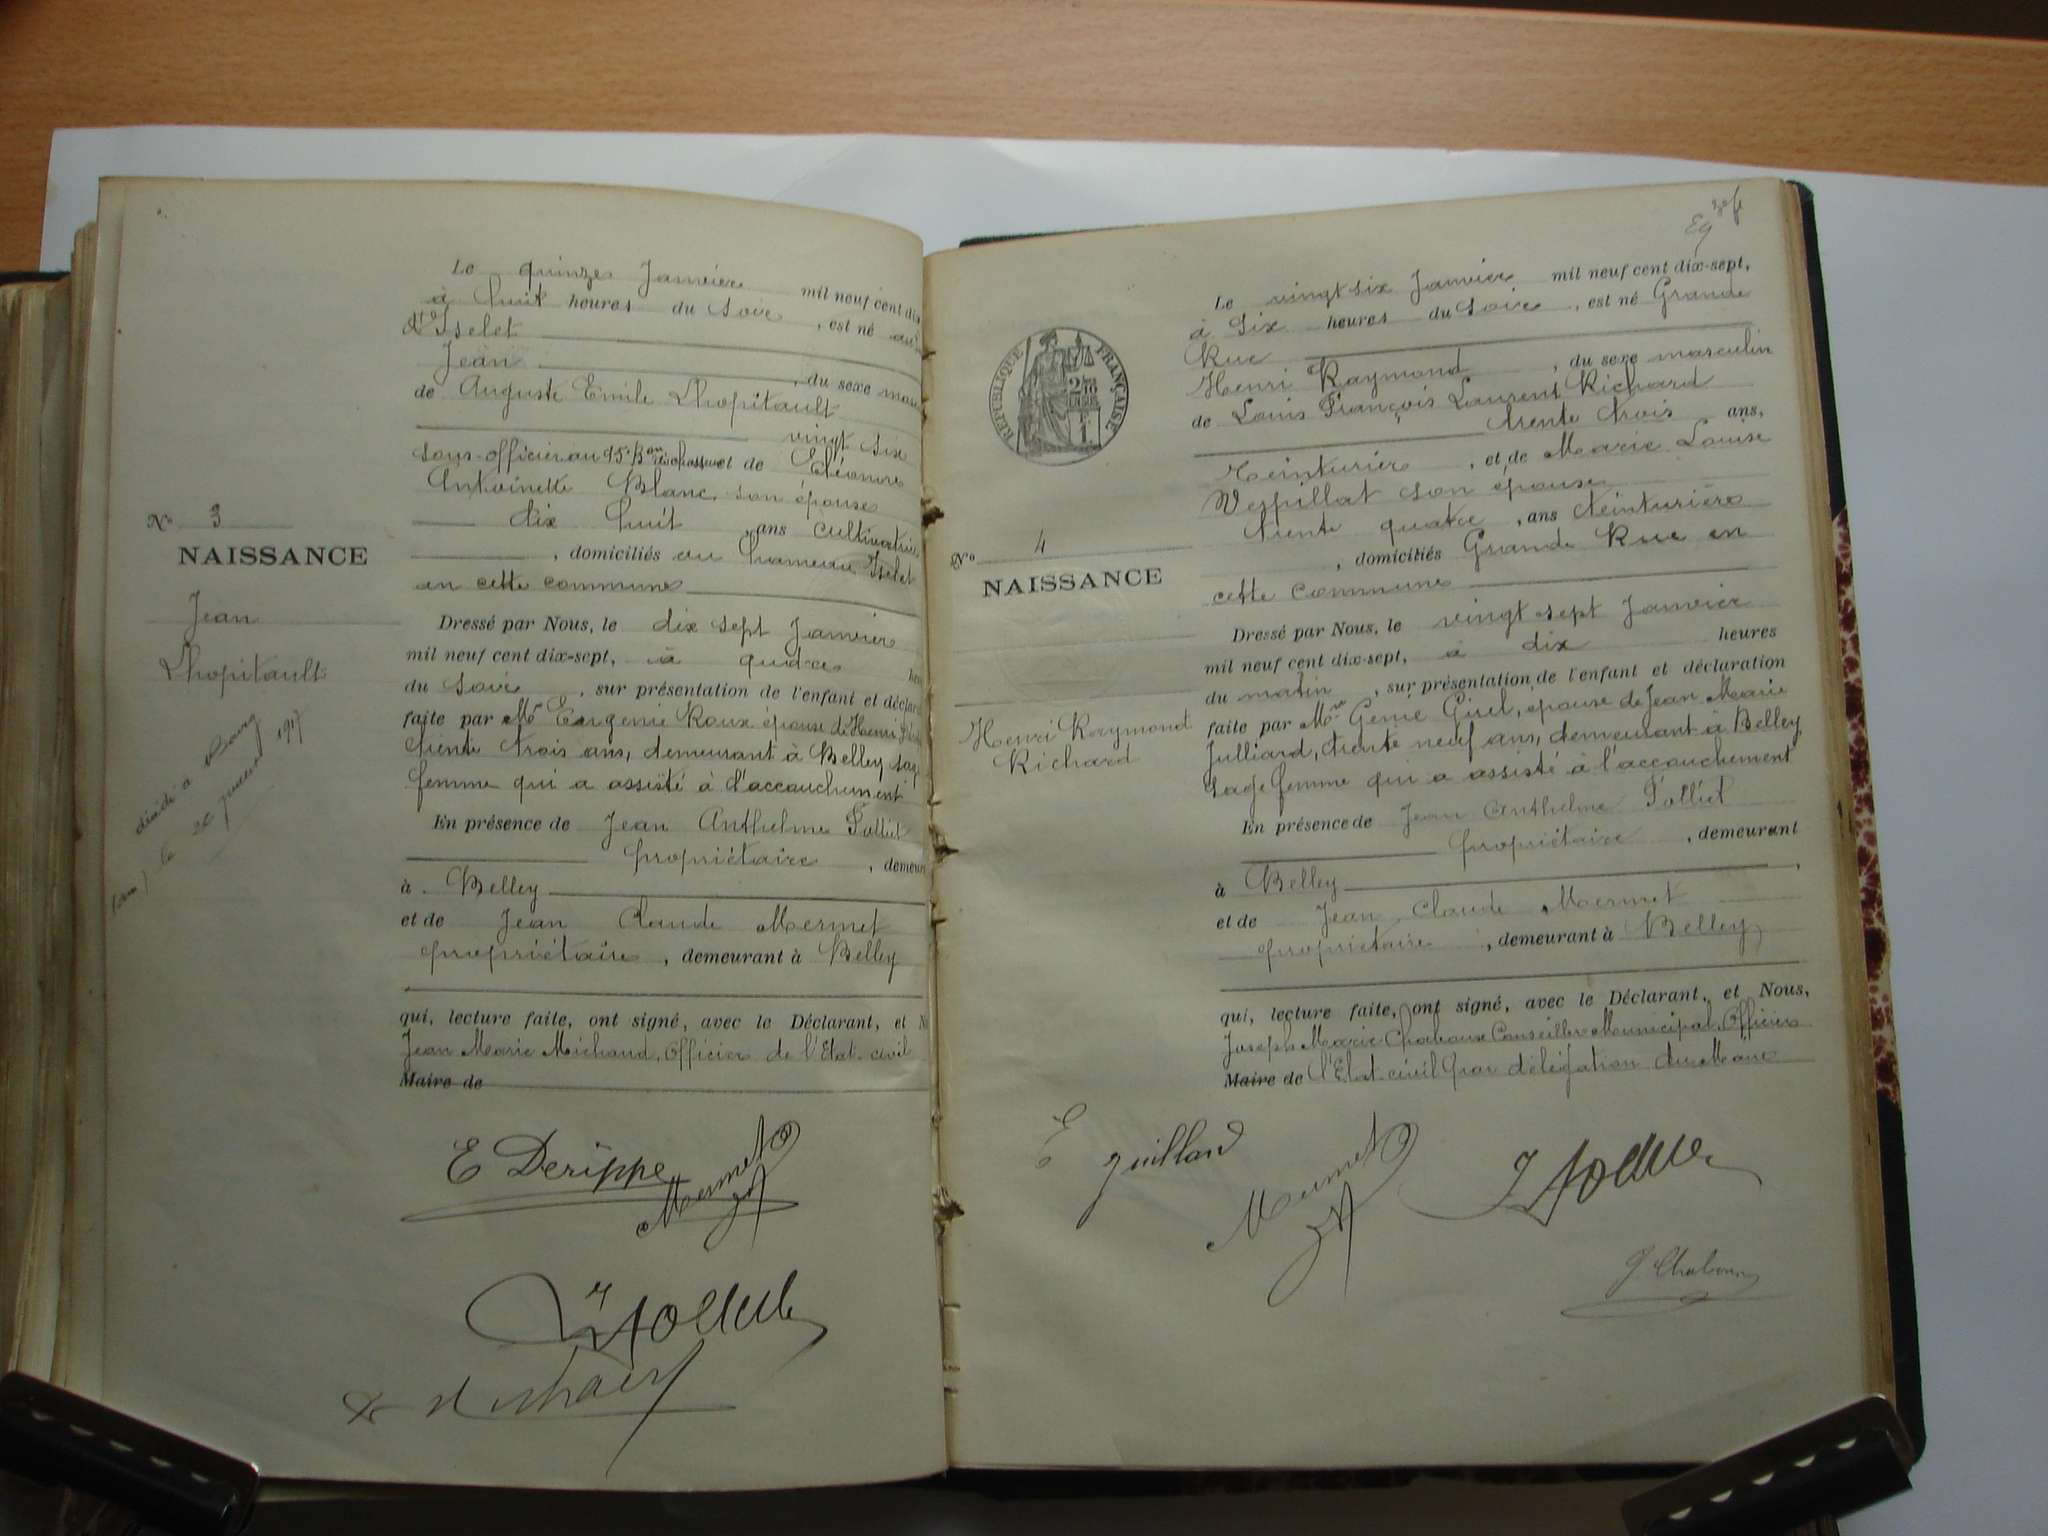 Le quinze Janvier mil neuf cent dix
à huit heures du soir, est né au
d'Iselet
Jean, du sexe masc
de Auguste Emile Lhopitault
vingt six
sous-officier au 15e Bon de chasseurs et de Eléonore
Antoinette Blanc, son épouse
dix huit ans cultivatrice
, domiciliés au hameau Iselet
en cette commune
No 3
NAISSANCE
Jean
Lhopitault
décédé à Bourg
(Ain) le 26 1917
Dressé par Nous, le dix sept Janvier
mil neuf cent dix-sept, à quatre heu
du soir, sur présentation de l'enfant et déclara
faite par Me Eugenie Roux épouse de Henri
trente trois ans, demeurant à Belley sage
femme qui a assisté à l'accouchement
En présence de Jean Anthelme Tolliet
propriétaire, demeur
à Belley
et de Jean Claude Mermet
propriétaire, demeurant à Belley
qui, lecture faite, ont signé, avec le Déclarant, et N
Jean Marie Michaud, Officier de l'Etat-civil
Maire de
E Derippe
Mermet
Le vingt six Janvier mil neuf cent dix-sept,
à six heures du soir, est né Grande
Rue
Henri Raymond, du sexe masculin
de Louis François Laurent Richard
trente trois ans,
teinturier, et de Marie Louise
Vespillat son épouse
trente quatre, ans teinturière
, domiciliés Grande Rue en
cette commune
RÉPUBLIQUE FRANÇAISE
No 4
NAISSANCE
Henri Raymond
Richard
Dressé par Nous, le vingt sept Janvier
mil neuf cent dix-sept, à dix heures
du matin, sur présentation de l'enfant et déclaration
faite par Me Genie Girel, épouse de Jean Marie
Julliard, trente neuf ans, demeurant à Belley
sage femme qui a assisté à l'accouchement
En présence de Jean Anthelme Tolliet
propriétaire, demeurant
à Belley,
et de Jean Claude Mermet
propriétaire, demeurant à Belley
qui, lecture faite, ont signé, avec le Déclarant, et Nous,
Joseph Marie Chaboux Conseiller Municipal, Officier
Maire de l'Etat-civil par délégation du Maire
Mermet